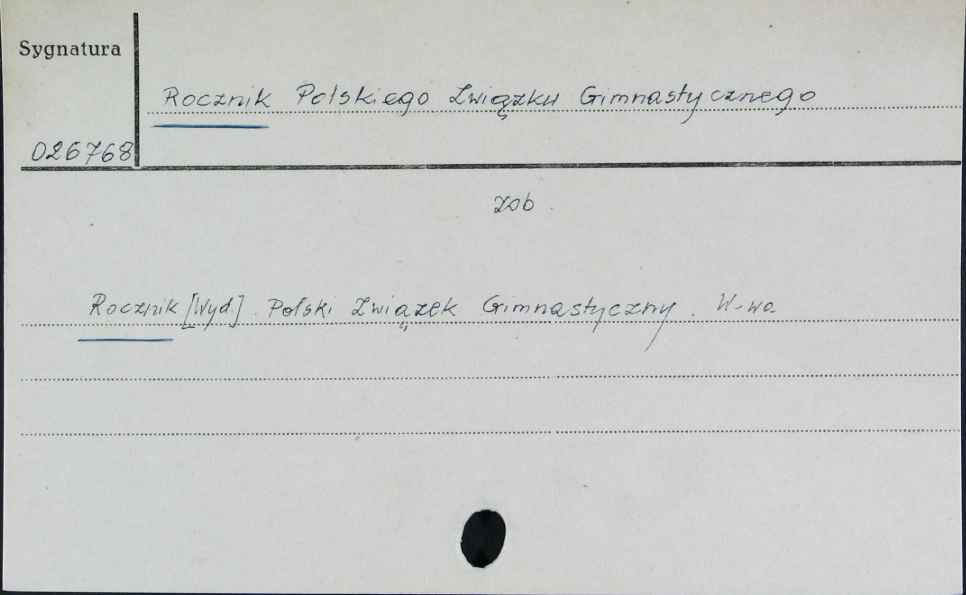 Sygnatura
Rocznik Polskiego Związku Gimnastycznego
026768
zob.
Rocznik [Wyd]. Polski Związek Gimnastyczny. W-wa